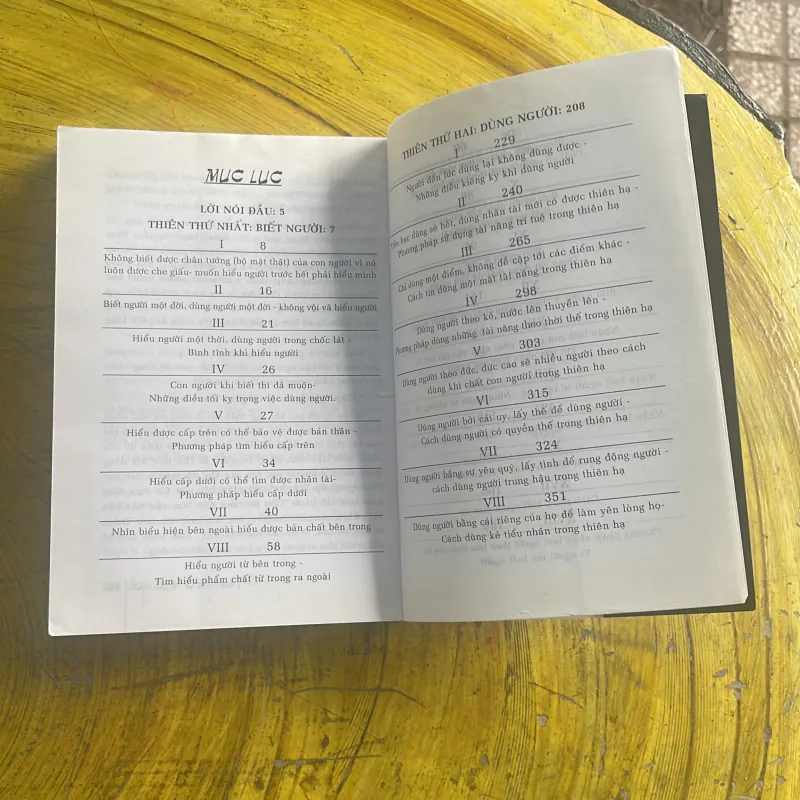 MỤC LỤC
LỜI NÓI ĐẦU: 5
THIÊN THỨ NHẤT: BIẾT NGƯỜI: 7
I 8
Không biết được chân tướng (bộ mặt thật) của con người vì nó
luôn được che giấu- muốn hiểu người trước hết phải hiểu mình
II 16
Biết người một đời, dùng người một đời - không vội vã hiểu người
III 21
Hiểu người một thời, dùng người trong chốc lát -
Bình tĩnh khi hiểu người
IV 26
Con người khi biết thì đã muộn-
Những điều tối kỵ trong việc dùng người.
V 27
Hiểu được cấp trên có thể bảo vệ được bản thân -
Phương pháp tìm hiểu cấp trên
VI 34
Hiểu cấp dưới có thể tìm được nhân tài-
Phương pháp hiểu cấp dưới
VII 40
Nhìn biểu hiện bên ngoài hiểu được bản chất bên trong
VIII 58
Hiểu người từ bên trong -
Tìm hiểu phẩm chất từ trong ra ngoài
THIÊN THỨ HAI: DÙNG NGƯỜI: 208
I 229
Người đến lúc dùng lại không dùng được -
Những điều kiêng kỵ khi dùng người
II 240
bạc dùng sẽ hết, dùng nhân tài mới có được thiên hạ -
Phương pháp sử dụng tài năng trí tuệ trong thiên hạ
III 265
Chỉ dùng một điểm, không đề cập tới các điểm khác -
Cách tin dùng một mặt tài năng trong thiên hạ
IV 298
Dùng người theo kế, nước lên thuyền lên -
Phương pháp dùng những tài năng theo thời thế trong thiên hạ
V 303
Dùng người theo đức, đức cao sẽ nhiều người theo cách
dùng khi chất con người trong thiên hạ
VI 315
Dùng người bởi cái uy, lấy thế để dùng người -
Cách dùng người có quyền thế trong thiên hạ
VII 324
Dùng người bằng sự yêu quý, lấy tình để rung động người -
cách dùng người trung hậu trong thiên hạ
VIII 351
Dùng người bằng cái riêng của họ để làm yên lòng họ-
Cách dùng kẻ tiểu nhân trong thiên hạ